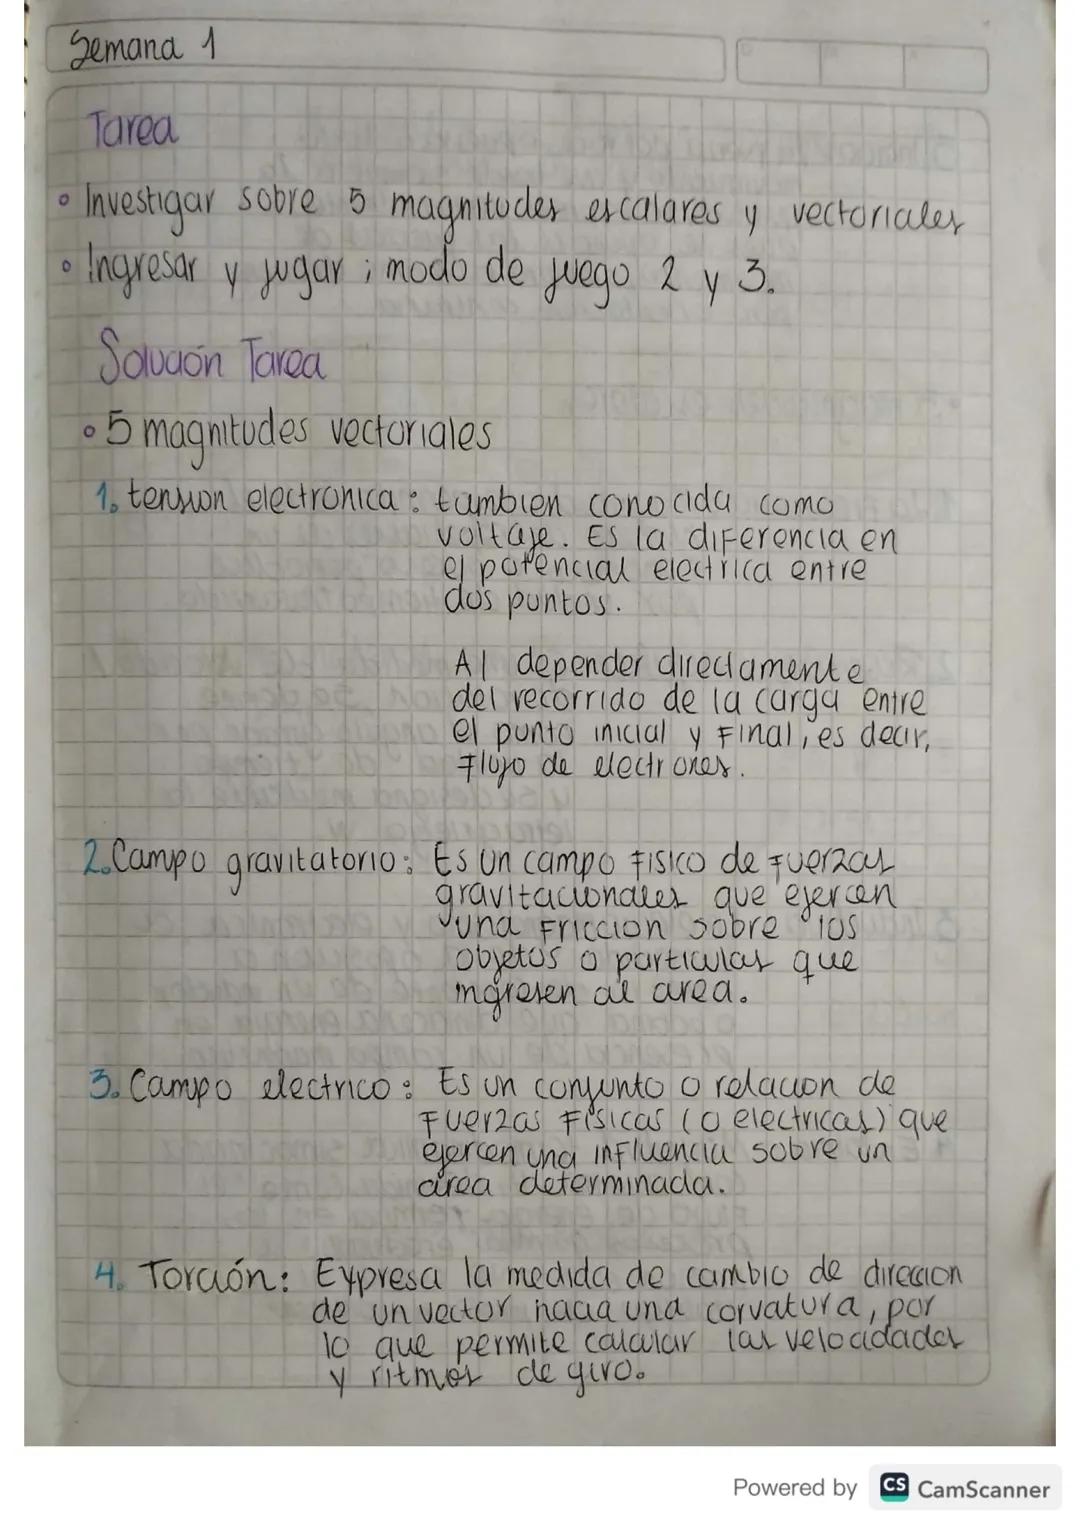 Semana 1
Tarea
• Investigar sobre 5 magnitudes escalares y vectoriales
• Ingresar y jugar ; modo de juego 2 y 3.
Solución Tarea
• 5 magnitudes vectoriales
1. tension electronica : tambien conocida como
voltaje. Es la diferencia en
el potencial electrica entre
dos puntos.
Al depender directamente
del recorrido de la carga entre
el punto inicial y Final, es decir,
Flujo de electrones.
2. Campo gravitatorio : Es un campo Fisico de Fuerzas
gravitacionales que ejercen
una Friccion sobre los
objetos o particulas que
ingresen al area.
3. Campo electrico : Es un conjunto o relacion de
Fuerzas Físicas (o electricas) que
ejercen una influencia sobre un
área determinada.
4. Torción: Expresa la medida de cambio de direccion
de un vector hacia una corvatura, por
lo que permite calcular las velocidades
y ritmos de giro.
Powered by CS CamScanner